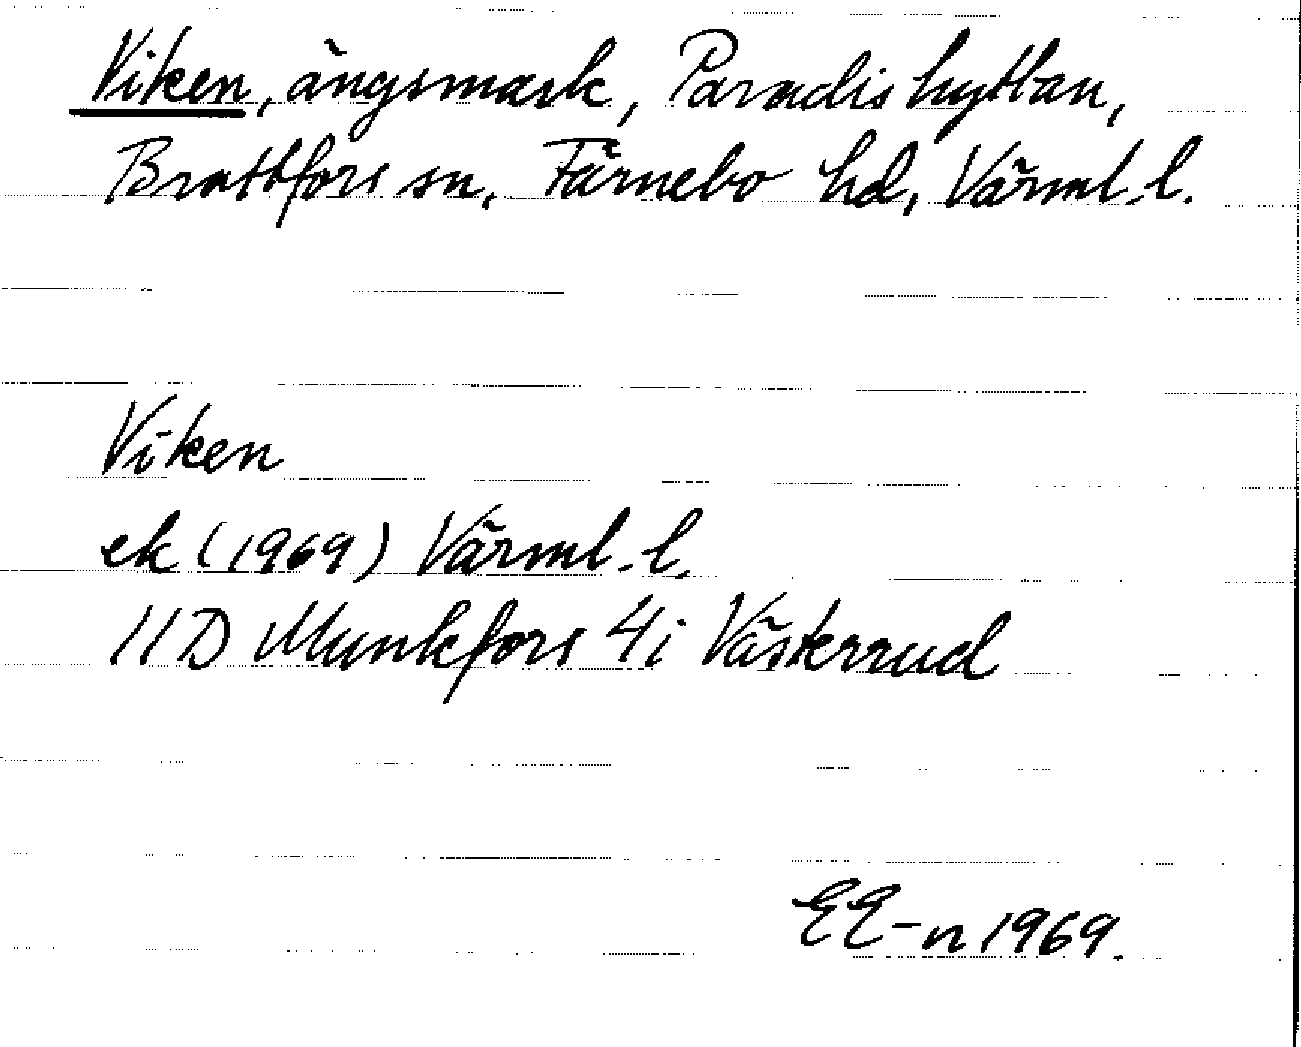 Viken, ängsmark, Paradishyttan,
Brattfors sn. Färnebo hd, Värml. l.
Viken
ek (1969) Värml. l.
11D Munkfors 4i Västerrud
EE-n 1969.